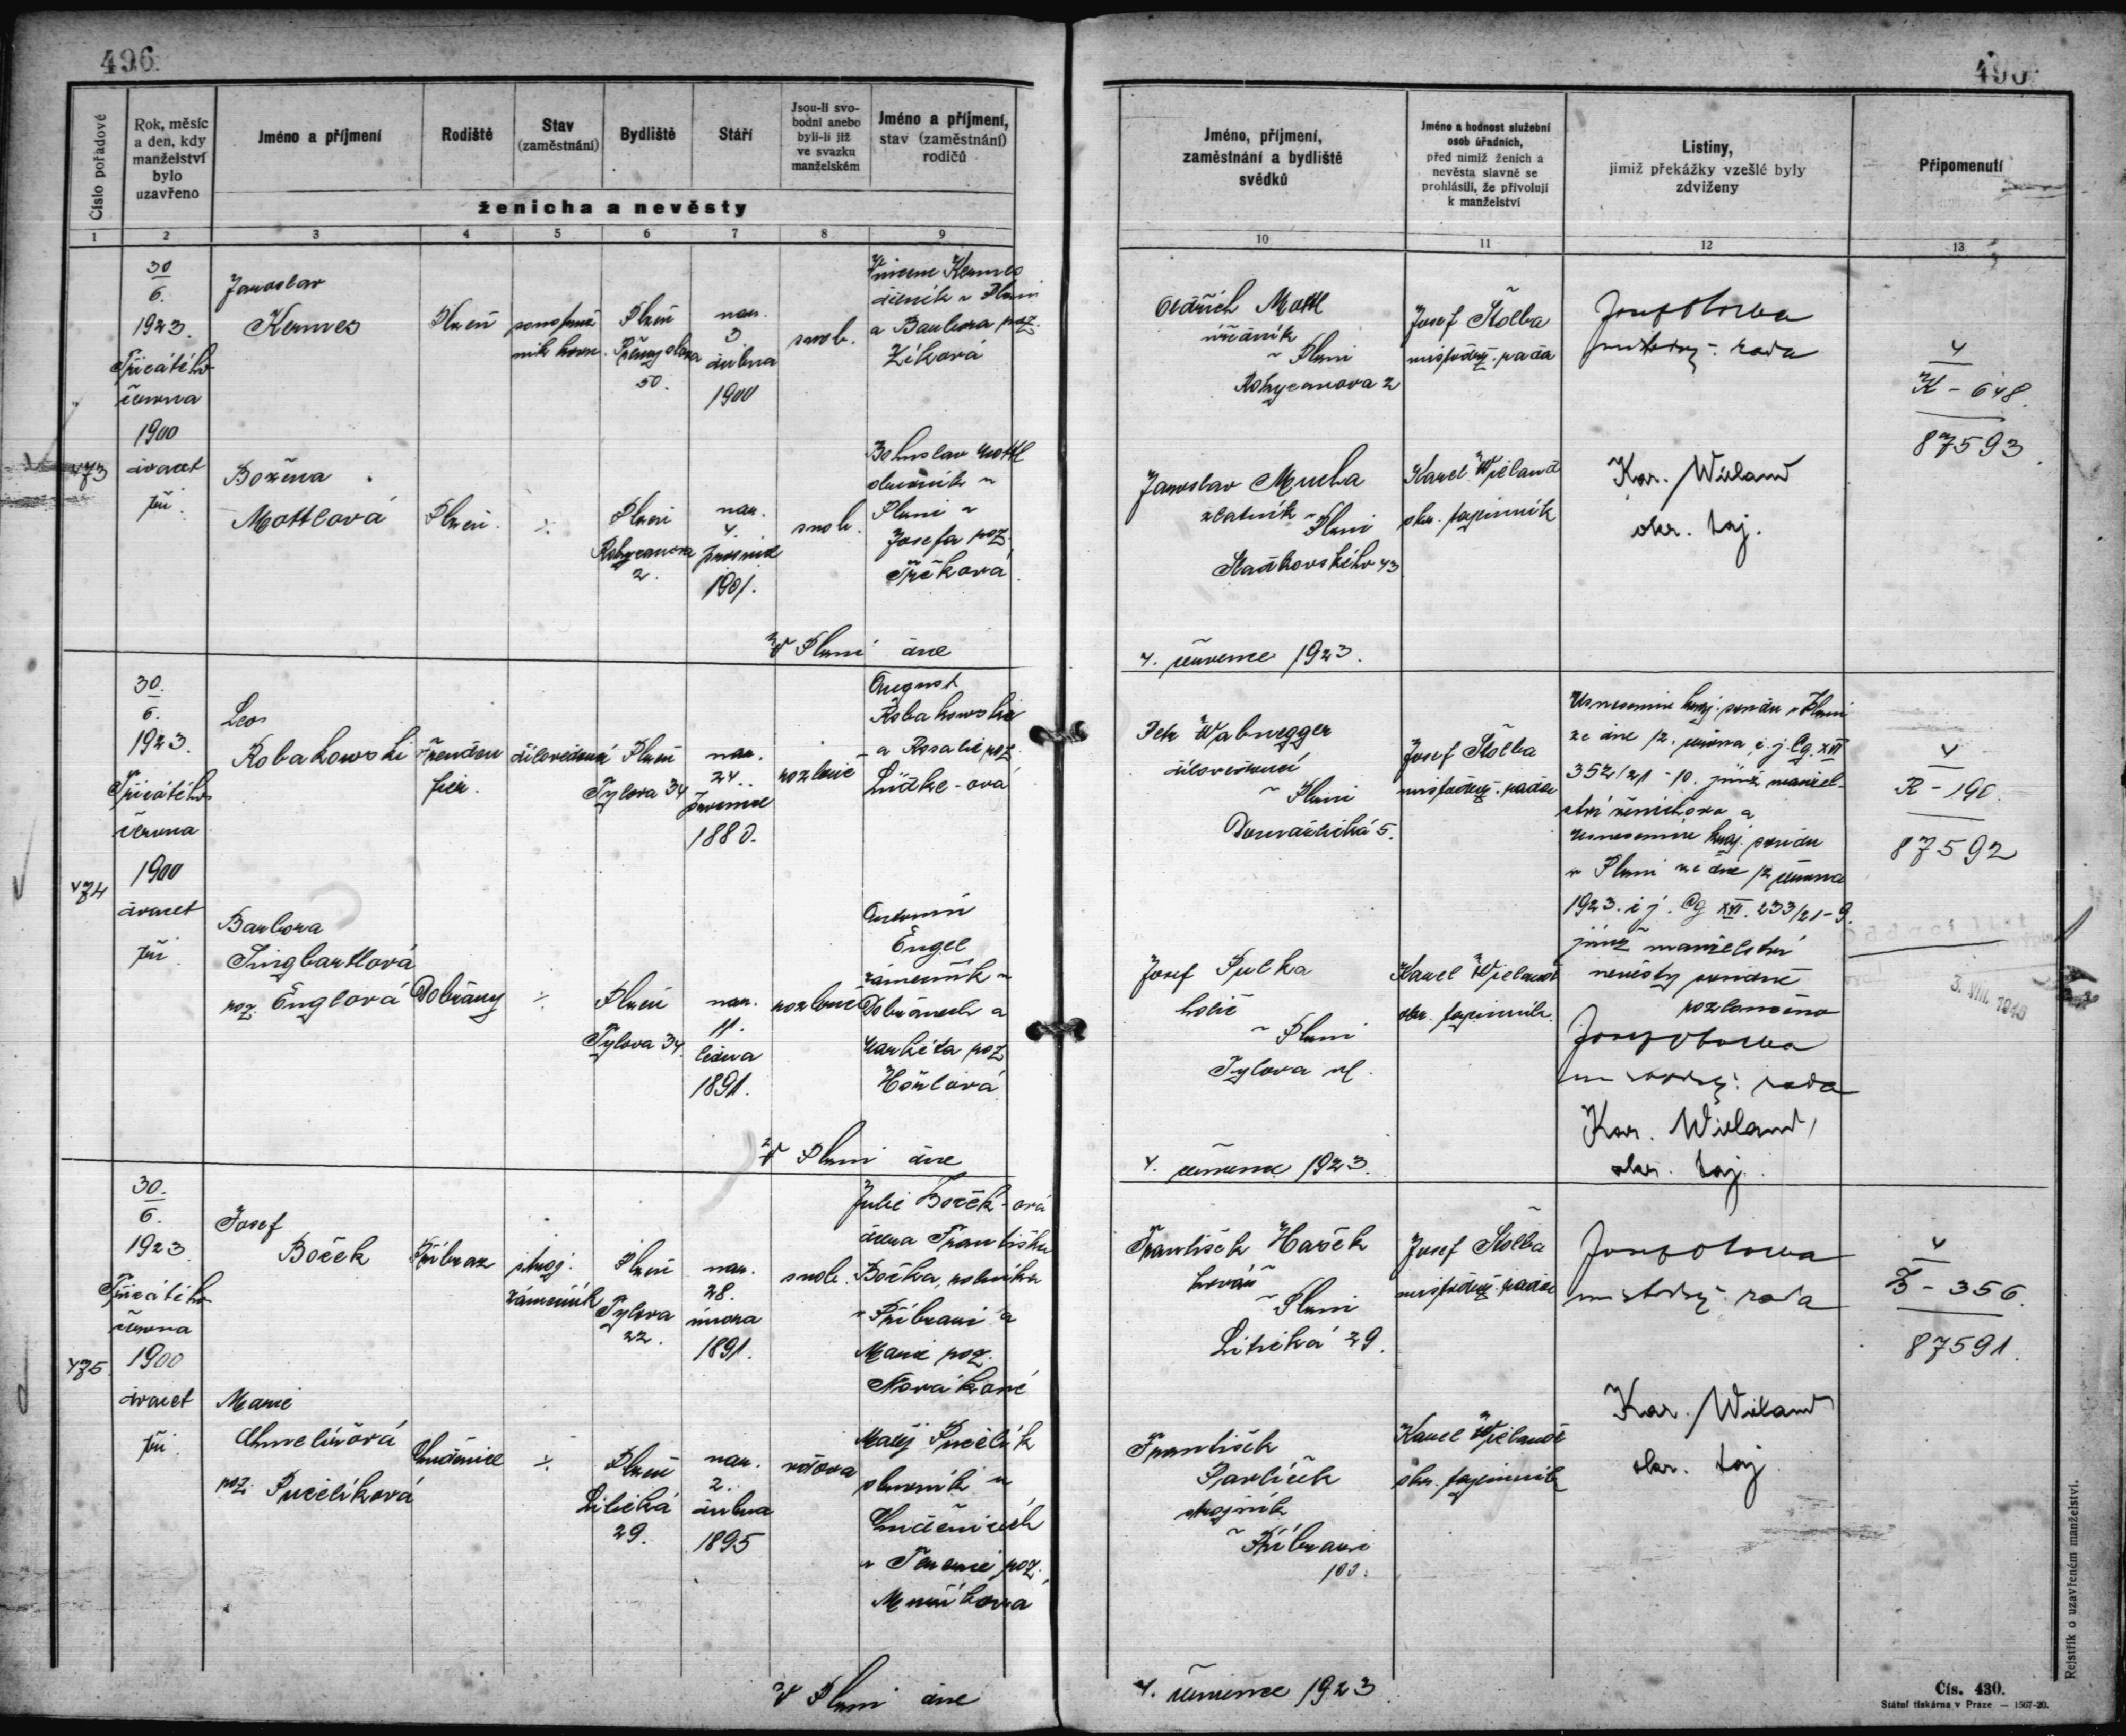 496
Číslo pořadové
Rok, měsíc
a den, kdy
manželství
bylo
uzavřeno
Jméno a příjmení
Rodiště
Stav
(zaměstnání)
Bydliště
Stáří
Jsou-li svo-
bodni anebo
byli-li již
ve svazku
manželském
Jméno a příjmení,
stav (zaměstnání)
rodičů
ženicha a nevěsty
1 2 3 4 5 6 7 8 9
473
30
6.
1923.
Třicátého
června
1900
dvacet
tři.
Jaroslav
Kermes
Plzeň
Plzeň
Přemyslova
50.
nar.
3
dubna
1900
svob.
Kermes
dělník v Plzni
a Barbora roz.
Zíková
Božena
Mottlová
Plzeň.
Plzeň
Rokycanova
2.
nar.
4.
prosince
1901.
svob.
Bohuslav Mottl
v
Plzni a
Josefa roz.
V Plzni dne
474
30.
6.
1923.
Třicátého
června
1900
dvacet
tři.
Leo
Robakowski
dílovedoucí
Plzeň
Tylova 34
nar.
24.
1880.
rozlouč
August
Robakowski
a Rosalie roz.
Lüdke-ová
Barbora
Jingbartlová
roz. Englová
Dobřany
Plzeň
Tylova 34.
nar.
11.
ledna
1891.
rozlouč
Antonín
Engel
zámečník v
Dobřanech a
Markéta roz.
V Plzni dne
475
30.
6.
1923
Třicátého
června
1900
dvacet
tři.
Josef
Boček
Příbraz
stroj.
zámečník
Plzeň
Tylova
22.
nar.
28.
února
1891.
svob.
Julie Boček-ová
dcera Františka
Bočka, rolníka
v Příbrazi a
Marie roz.
Novákové
Marie
Chmelířová
roz. Pucelíková
Chudenice
Plzeň
Litická
29.
nar.
2.
dubna
1895
vdova
Matěj Pucelík
v
Chudenicích
a Terezie roz.
V Plzni dne
Jméno, příjmení,
zaměstnání a bydliště
svědků
Jméno a hodnost služební
osob úřadních,
před nimiž ženich a
nevěsta slavně se
prohlásili, že přivolují
k manželství
Listiny,
jimiž překážky vzešlé byly
zdviženy
Připomenutí
10 11 12 13
Oldřich Mottl
úředník
v Plzni
Rokycanova 2
Josef Štolba
místodrž. rada
Josef Štolba
místodrž. rada
V
K - 648.
87593.
Jaroslav Mucha
zlatník v Plzni
Sladkovského 43
Karel Wieland
okr. tajemník
Kar. Wieland
okr. taj.
4. července 1923.
Petr Wabnegger
dílovedoucí
v Plzni
Domažlická 5.
Josef Štolba
místodrž. rada
Usnesením kraj. soudu v Plzni
ze dne 12. června č. j. Cg. XVI
352/21 - 10. jímž manžel-
ství ženichovo a
usnesením kraj. soudu
v Plzni ze dne 12 června
1923. č j. Cg XVI. 233/21-9.
jímž manželství
nevěsty soudně
rozloučeno
Josef Štolba
místodrž. rada
Kar. Wieland
okr. taj.
V
R - 190.
87592
3. VIII. 1946
Josef Pulka
holič
v Plzni
Tylova ul.
Karel Wieland
okr. tajemník.
4. července 1923.
František Hašek
kovář
v Plzni
Litická 29.
Josef Štolba
místodrž. rada
Josef Štolba
místodrž. rada
V
B - 356.
87591.
František
Pavlíček
strojník
v Příbrazi
103.
Karel Wieland
okr. tajemník
Kar. Wieland
okr. taj.
4. července 1923
Čís. 430.
Státní tiskárna v Praze. — 1567-20.
Rejstřík o uzavřeném manželství.